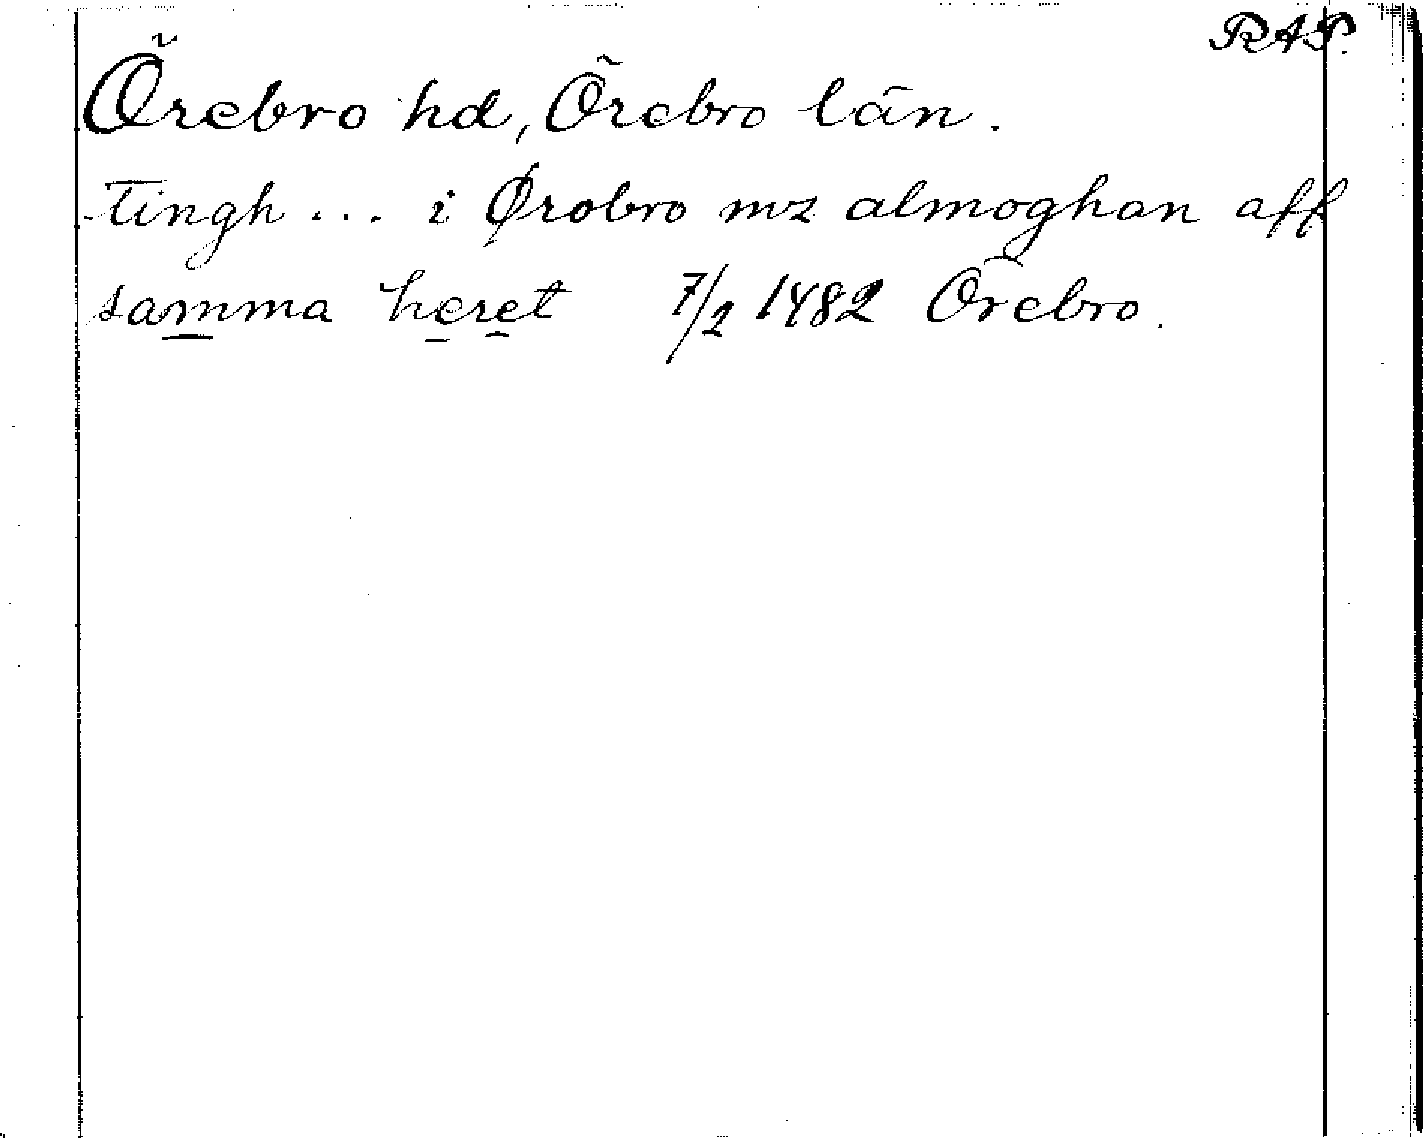 RAP.
Örebro hd, Örebro län.
Tingh ... i Ørobro mz almoghan aff
samma heret 7/2 1482 Örebro.